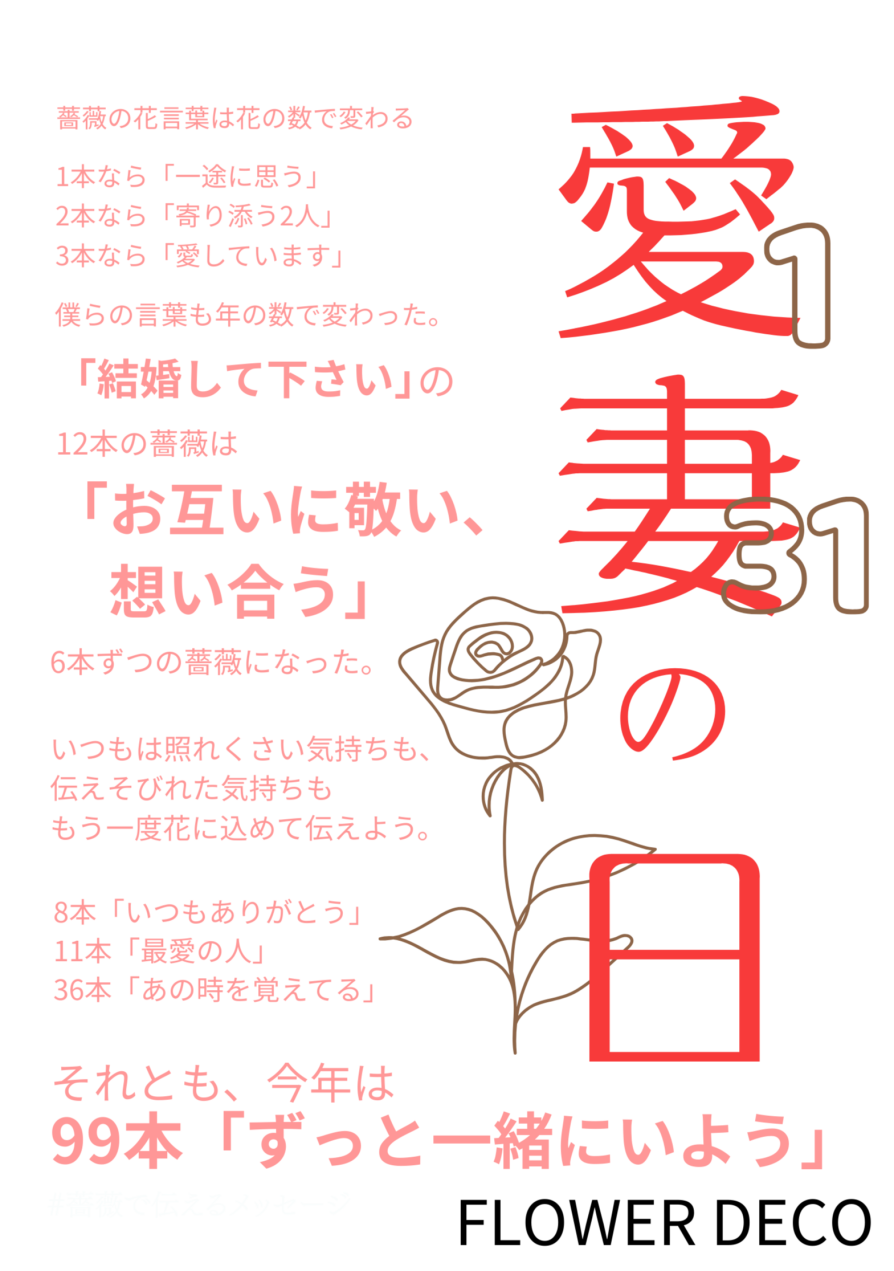 薔薇の花言葉は花の数で変わる
1本なら「一途に思う」
2本なら「寄り添う2人」
3本なら「愛しています」
僕らの言葉も年の数で変わった。
「結婚して下さい」の
12本の薔薇は
「お互いに敬い、
想い合う」
6本ずつの薔薇になった。
いつもは照れくさい気持ちも、
伝えそびれた気持ちも
もう一度花に込めて伝えよう。
8本「いつもありがとう」
11本「最愛の人」
36本「あの時を覚えてる」
それとも、今年は
99本「ずっと一緒にいよう」
#薔薇で伝えるメッセージ
愛妻の日
1
31
FLOWER DECO